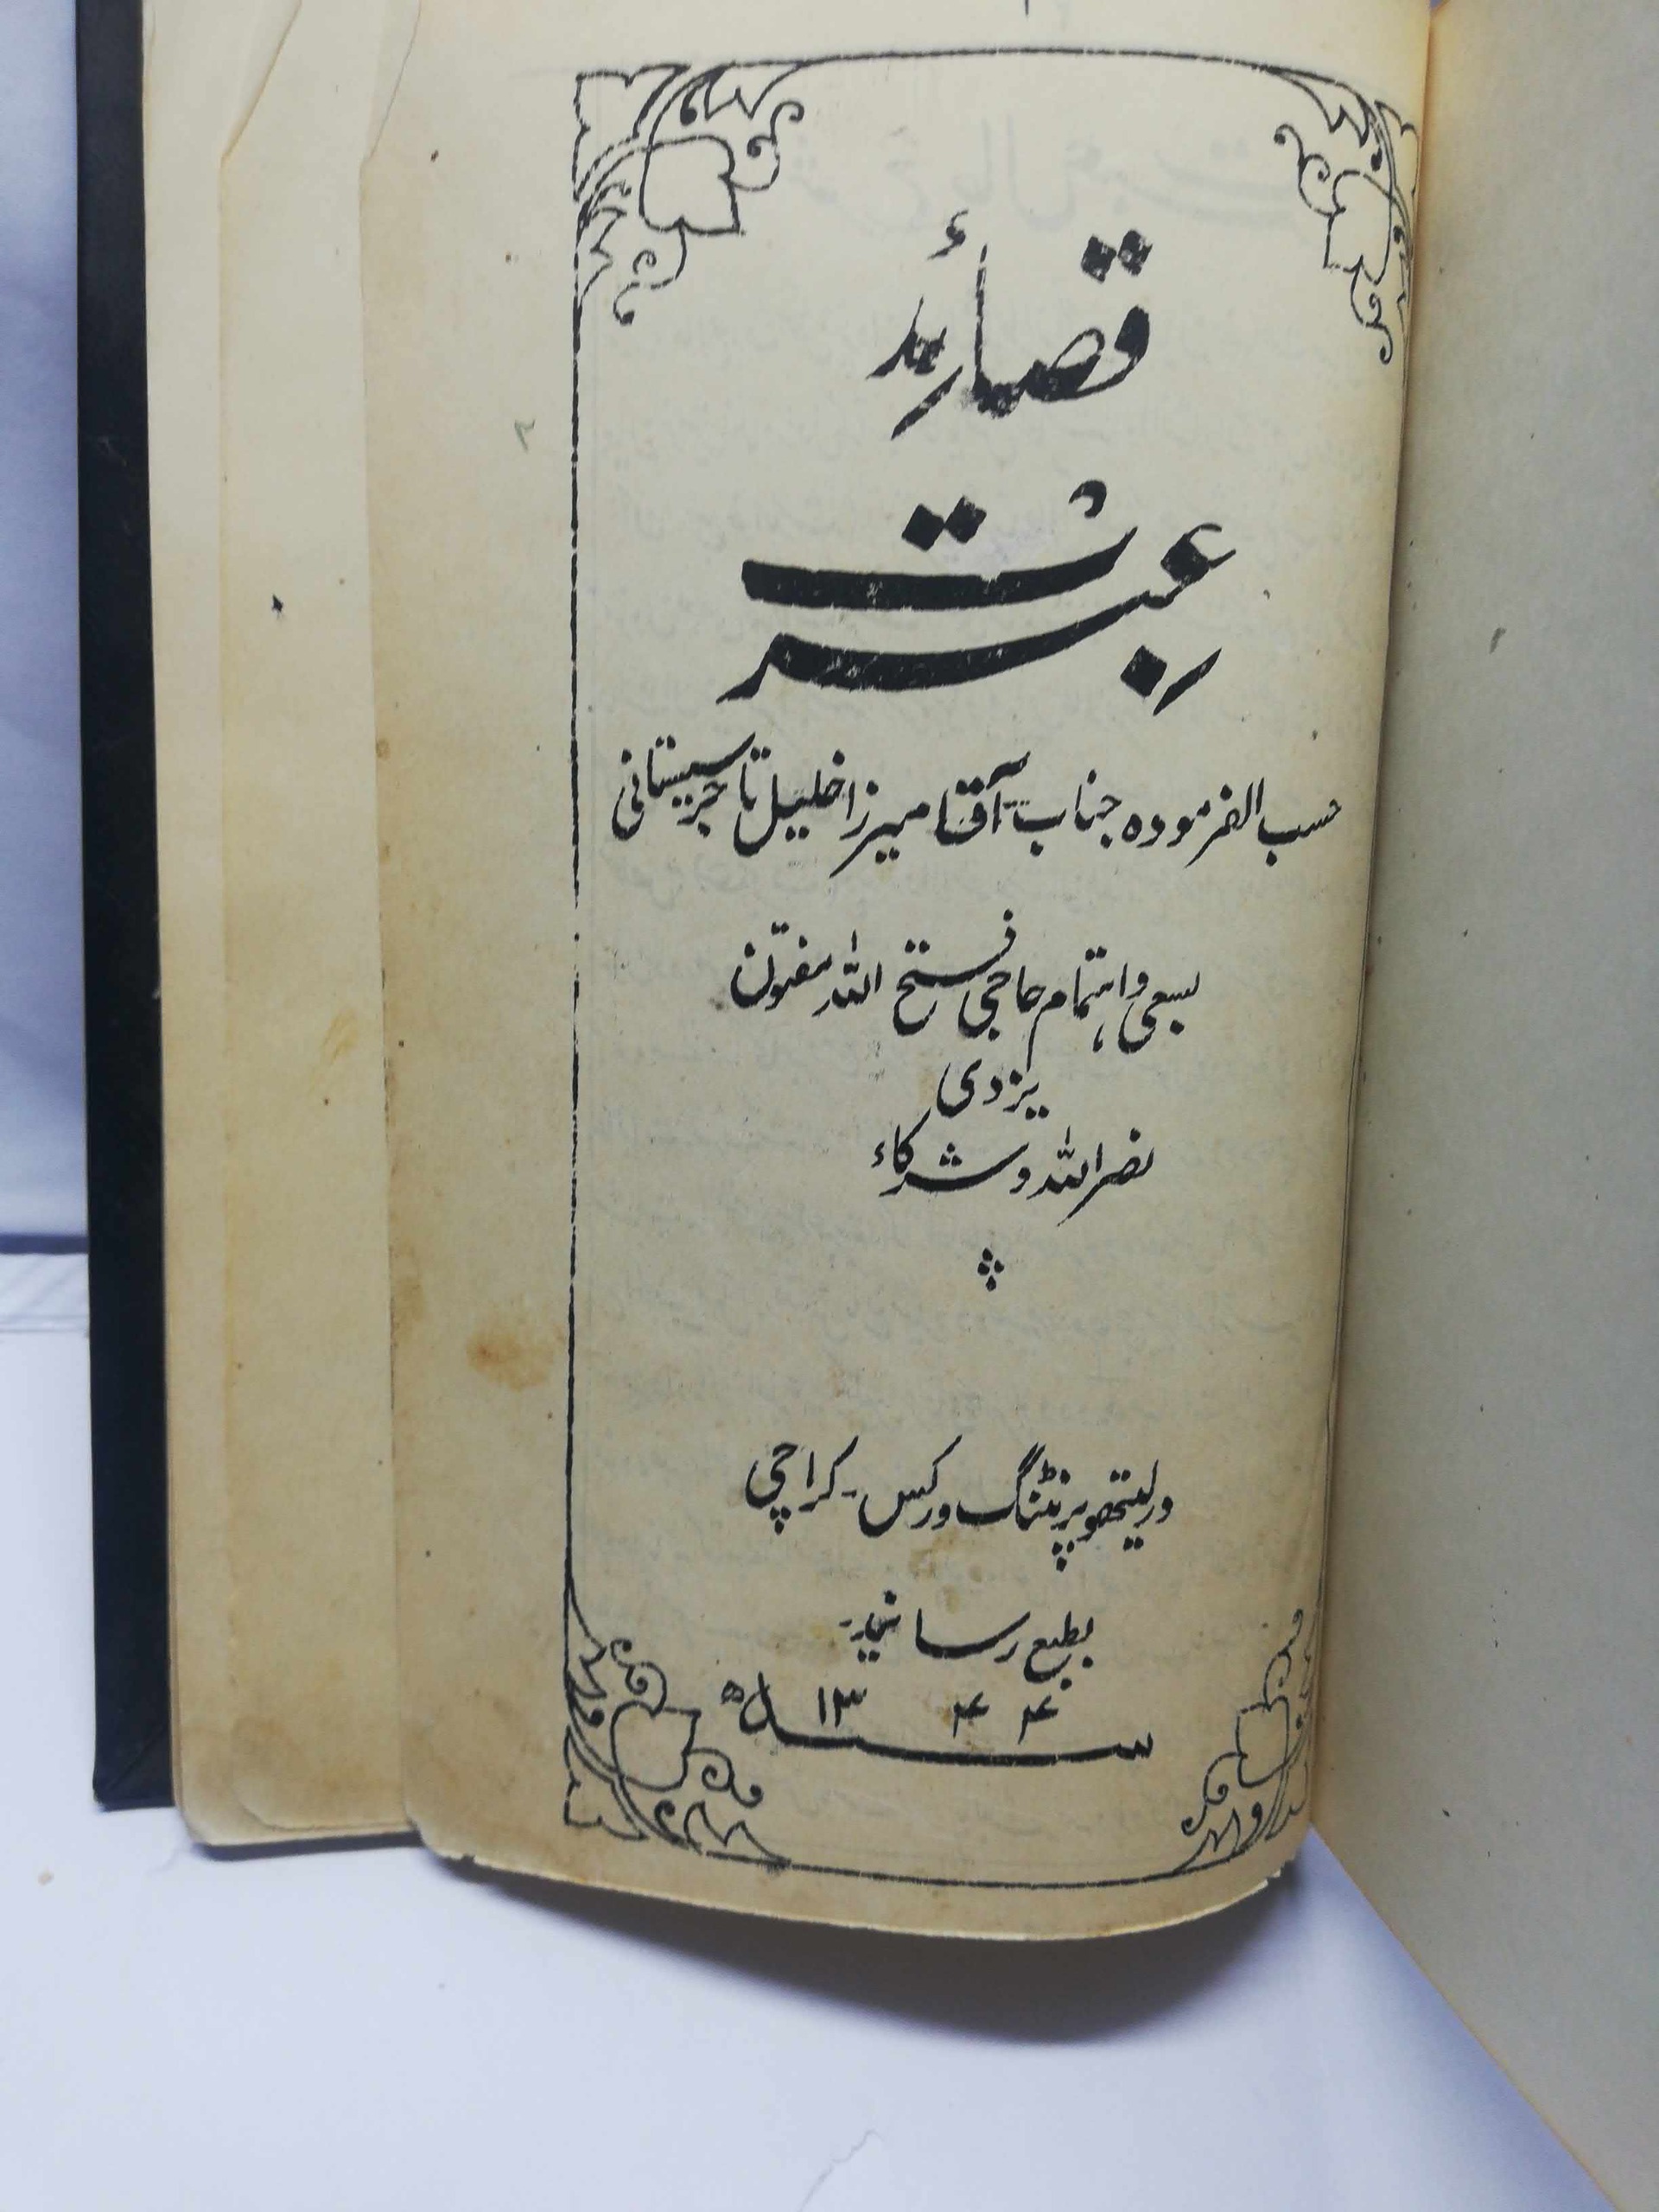 قصائد
عبرت
حسب الفرموده جناب آقا میرزا خلیل تاجر سیستانی
بسعی و اهتمام حاجی فتح الله مفتون
یزدی
نصرالله و شرکاء
در لیتھو پرنٹنگ ورکس۔ کراچی
بطبع رسانید
سنه ۱۳۴۴ ھ